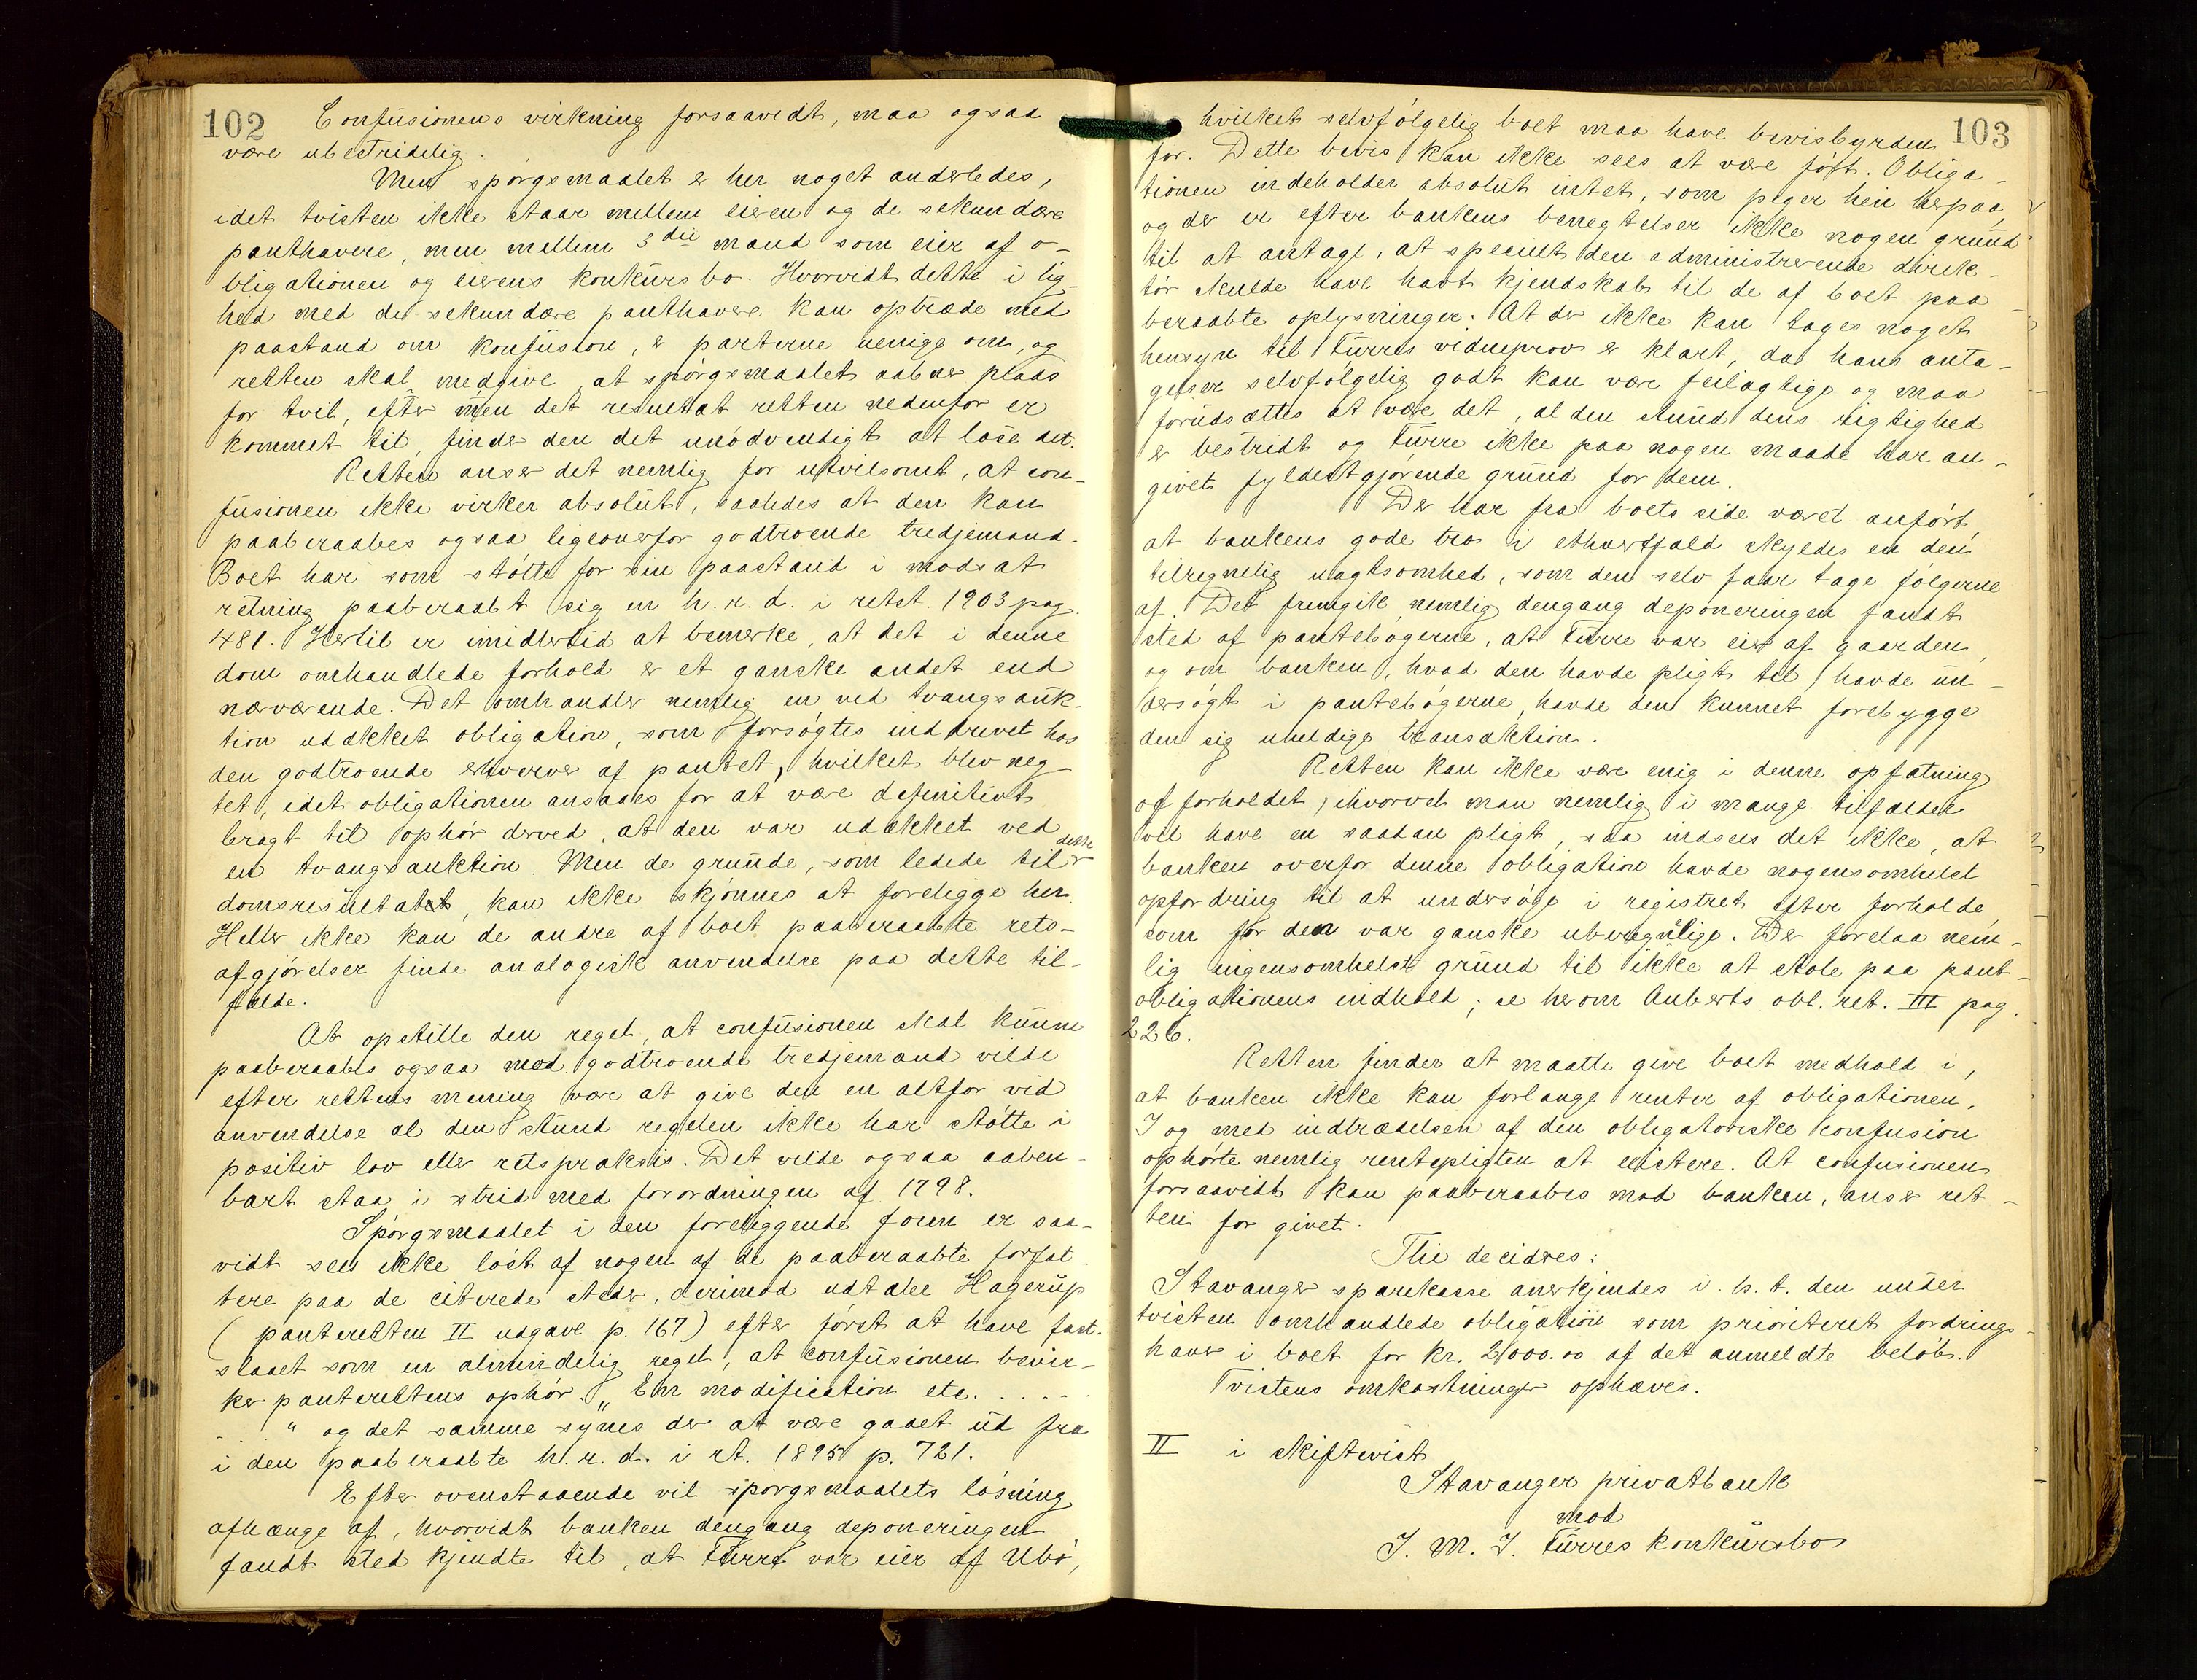 102
Confusionens virkning forsaavidt, maa ogsaa
være ubestridelig.
Men spørgsmaalet er her noget anderledes,
idet tvisten ikke staar mellem eieren og de sekundære
panthavere, men mellem 3die mand som eier af o-
bligationen og eierens konkursbo. Hvorvidt dette i lig-
hed med de sekundære panthavere kan optræde med
paastand om konfusion, er parterne uenige om, og
retten skal medgive, at spørgsmaalet aabner plads
for tvil, efter men det resultat retten nedenfor er
kommet til, finder den det unødvendigt at løse det.
Retten anser det nemlig for utvilsomt, at con-
fusionen ikke virker absolut, saaledes at den kan
paaberaabes ogsaa ligeoverfor godtroende tredjemand.
Boet har som støtte for sin paastand i modsat
retning paaberaabt sig en h. r. d. i retst. 1903 pag.
481. Hertil er imidlertid at bemerke, at det i denne
dom omhandlede forhold er et ganske andet end
nærværende. Det omhandler nemlig en ved tvangsauk-
tion udækket obligation, som forsøgtes inddrevet hos
den godtroende erhverver af pantet, hvilket blev neg-
tet, idet obligationen ansaaes for at være definitivt
bragt til ophør derved, at den var udækket ved
en tvangsauktion. Men de grunde, som ledede til dette
domsresultatet, kan ikke skjønnes at foreligge her.
Heller ikke kan de andre af boet paaberaabte rets-
afgjørelser finde analogisk anvendelse paa dette til-
fælde.
At opstille den regel, at confusionen skal kunne
paaberaabes ogsaa mod godtroende tredjemand vilde
efter rettens mening være at give den en altfor vid
anvendelse al den stund regelen ikke har støtte i
positiv lov eller retspraksis. Det vilde ogsaa aaben-
bart staa i strid med forordningen af 1798.
Spørgsmaalet i den foreliggende form er saa-
vidt sees ikke løst af nogen af de paaberaabte forfat-
tere paa de citerede steder, derimod udtaler Hagerup
(panteretten II udgave p. 167) efter først at have fast-
slaaet som en almindelig regel, at confusionen bevir-
ker panterettens ophør. „En modification etc. . . . . .
. . " og det samme synes der at være gaaet ud fra
i den paaberaabte h. r. d. i rt. 1895 p. 721.
Efter ovenstaaende vil spørgsmaalets løsning
afhænge af, hvorvidt banken dengang deponeringen
fandt sted kjendte til, at Furre var eier af Ubø,
103
hvilket selvfølgelig boet maa have bevisbyrden
for. Dette bevis kan ikke sees at være ført. Obliga-
tionen indeholder absolut intet, som peger hen herpaa,
og der er efter bankens benegtelser ikke nogen grund
til at antage, at specielt den administrerende direk-
tør skulde have havt kjendskab til de af boet paa-
beraabte oplysninger. At der ikke kan tages noget
hensyn til Furres vidneprov er klart, da hans anta-
gelser selvfølgelig godt kan være feilagtige og maa
forudsættes at være det, al den stund dens rigtighed
er bestridt og Furre ikke paa nogen maade har an-
givet fyldestgjørende grund for dem.
Der har fra boets side været anført,
at bankens gode tro i ethvertfald skyldes en den
tilregnelig uagtsomhed, som den selv faar tage følgerne
af. Det fremgik nemlig dengang deponeringen fandt
sted af pantebøgerne, at Furre var eier af gaarden,
og om banken, hvad den havde pligt til, havde un-
dersøgt i pantebøgerne, havde den kunnet forebygge
den sig uheldige transaktion.
Retten kan ikke være enig i denne opfatning
af forholdet, ihvorvel man nemlig i mange tilfælder
vil have en saadan pligt, saa indsees det ikke, at
banken overfor denne obligation havde nogensomhelst
opfordring til at undersøge i registret efter forholde,
som for den var ganske uberegnlige. Der forelaa nem-
lig ingensomhelst grund til ikke at stole paa pant-
obligationens indhold; se herom Auberts obl. ret. III pag.
226.
Retten finder at maatte give boet medhold i,
at banken ikke kan forlange renter af obligationen.
I og med indtrædelsen af den obligatoriske confusion
ophørte nemlig rentepligten at existere. At confusionen
forsaavidt kan paaberaabes mod banken, anser ret-
ten for givet.
Thi decideres:
Stavanger sparekasse anerkjendes i. h. t. den under
tvisten omhandlede obligation som prioriteret fordrings-
haver i boet for kr. 21000.00 af det anmeldte beløb.
Tvistens omkostninger ophæves.
II i skiftetvist
Stavanger privatbank
mod
J. M. J. Furres konkursbo